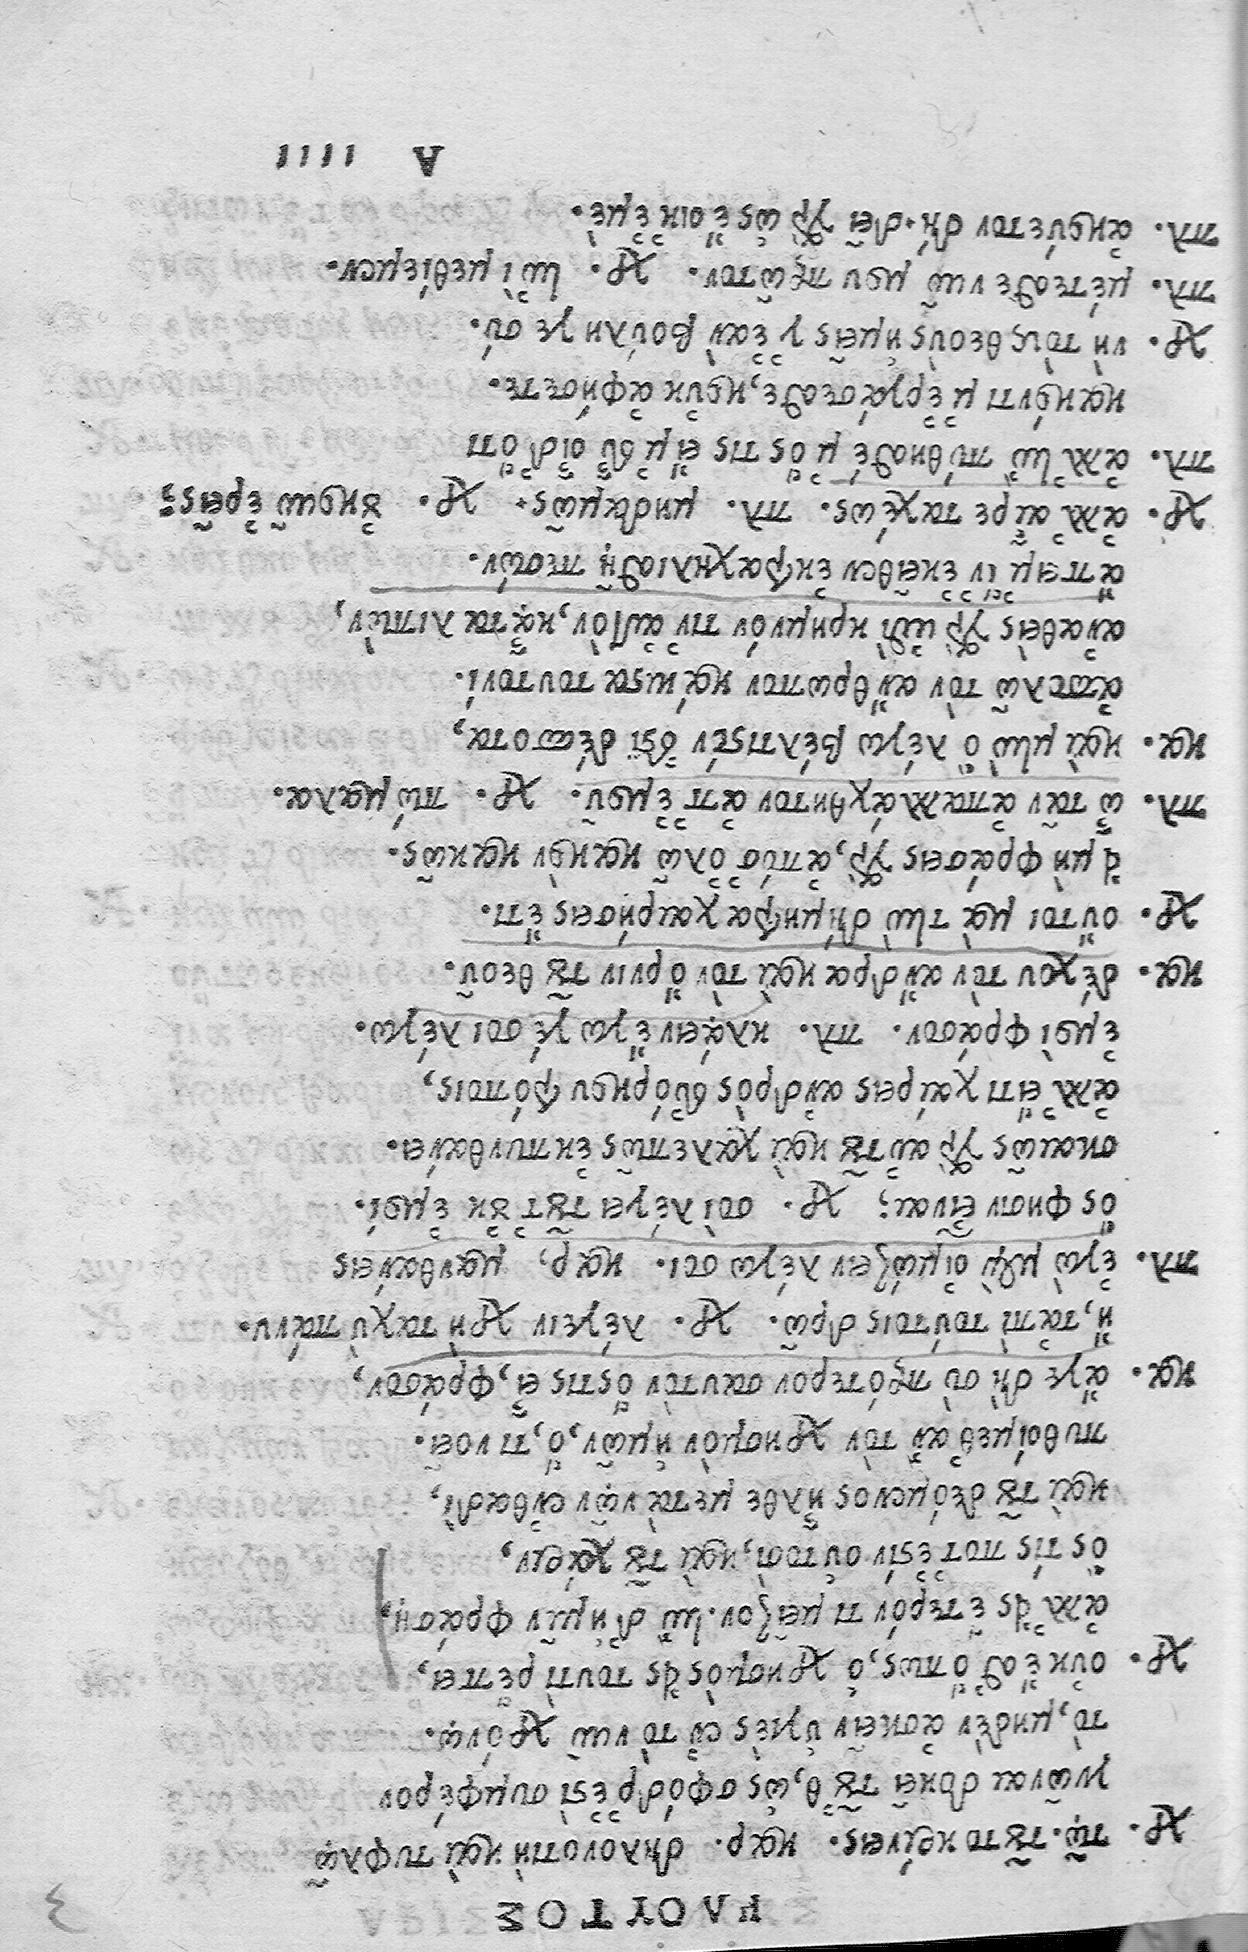 ΠΛΟΥΤΟΣ
3
Χρ. τῷ. τοῦτο κρίνεις. καρ. δηλονοτιὴ καὶ τυφλῷ
γνῶναι δοκεῖ τοῦθ᾽, ὡς σφόδρ᾽ ἐστὶ συμφέρον
τὸ, μηδὲν ἀσκεῖν ὑγιὲς ἐν τῷ νῦν χρόνῳ.
Χρ. οὐκ ἔσθ᾽ ὅπως, ὁ χρησμὸς εἰς τοῦτο ρέπει,
ἀλλ᾽ εἰς ἕτερόν τι μεῖζον. ἢν δ᾽ ἡμῖν φράσῃ
ὅς τίς ποτ᾽ ἐστὶν οὑτοσὶ, καὶ τοῦ χάριν,
καὶ τοῦ δεόμενος ἦλθε μετὰ νῶν ἐνθαδὶ,
πυθοίμεθ᾽ ἂν τὸν χρησμὸν ἡμῶν, ὅ, τι νοεῖ.
κα. ἄγε δὴ σὺ πρότερον σαυτὸν ὅστις εἶ, φράσον,
ἢ, τἀπὶ τούτοις δρῶ. Χρ. λέγειν χρὴ ταχὺ πάνυ.
πλ. ἐγὼ μὲν οἰμώζειν λέγω σοι. καρ, μανθάνεις
ὅς φησιν εἶναι; Χρ. σοὶ λέγει τοῦτ᾽ οὐκ ἐμοί.
σκαιῶς γὰρ αὐτοῦ καὶ χαλεπῶς ἐκπυνθάνει.
ἀλλ᾽ εἴ τι χαίρεις ἀνδρὸς εὐόρκου τρόποις,
ἐμοὶ φράσον. πλ. κλάειν ἔγωγέ σοι λέγω.
κα. δέχου τὸν ἄνδρα καὶ τὸν ὄρνιν τοῦ θεοῦ.
Χρ. οὔτοι μὰ τὴν δήμητρα χαιρήσεις ἔτι.
εἰ μὴ φράσεις γὰρ, ἀπό σ᾽ ὀλῶ κακὸν κακῶς.
πλ. ὦ τᾶν ἀπαλλάχθητον ἀπ᾽ ἐμοῦ. Χρ. πώμαλα.
κα. καὶ μὴν ὃ λέγω βέλτιστόν ἐστι δέσποτα,
ἀπολῶ τὸν ἄνθρωπον κάκιστα τουτονί.
ἀναθεὶς γὰρ ἐπὶ κρημνόν τιν᾽ αὐτὸν, κᾆτα λιπὼν,
ἄπειμ᾽ ἵν᾽ ἐκεῖθεν ἐκτραχηλισθῇ πεσών.
Χρ. ἀλλ᾽ αἶρε ταχέως. πλ. μηδαμῶς. Χρ. οὔκουν ἐρεῖς;
πλ. ἀλλ᾽ ἢν πύθησθέ μ᾽ ὅς τις εἴμ᾽ εὖ οἶδ᾽ ὅτι
κακόν τι μ᾽ ἐργάσεσθε, κοὐκ ἀφήσετε.
Χρ. νὴ τοὺς θεοὺς ἡμεῖς γ᾽ ἐὰν βούλῃ γε σύ.
πλ. μέτεσθε νῦν μου πρῶτον. Χρ. ἢν μεθίεμεν.
πλ. ἀκούετον δή. δεῖ γὰρ ὡς ἔοικ᾽ ἐμὲ.
A IIII